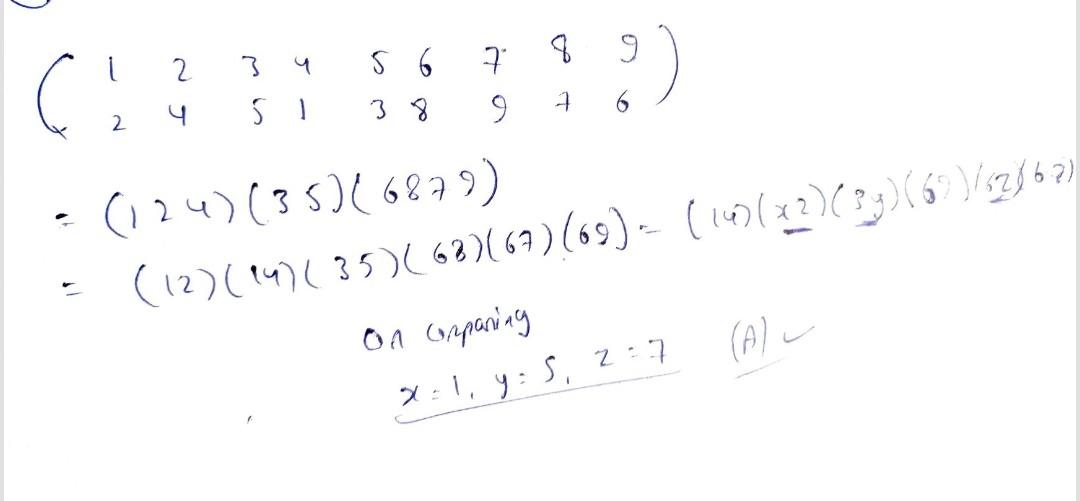 ( 1 2 3 4 5 6 7 8 9 )
2 4 5 1 3 8 9 7 6
= (1 2 4) (3 5) (6 8 7 9)
= (12) (14) (35) (68) (67) (69) = (14) (x2) (3y) (69) (6z) (6
On comparing
x = 1, y = 5, z = 7 (A) ✓